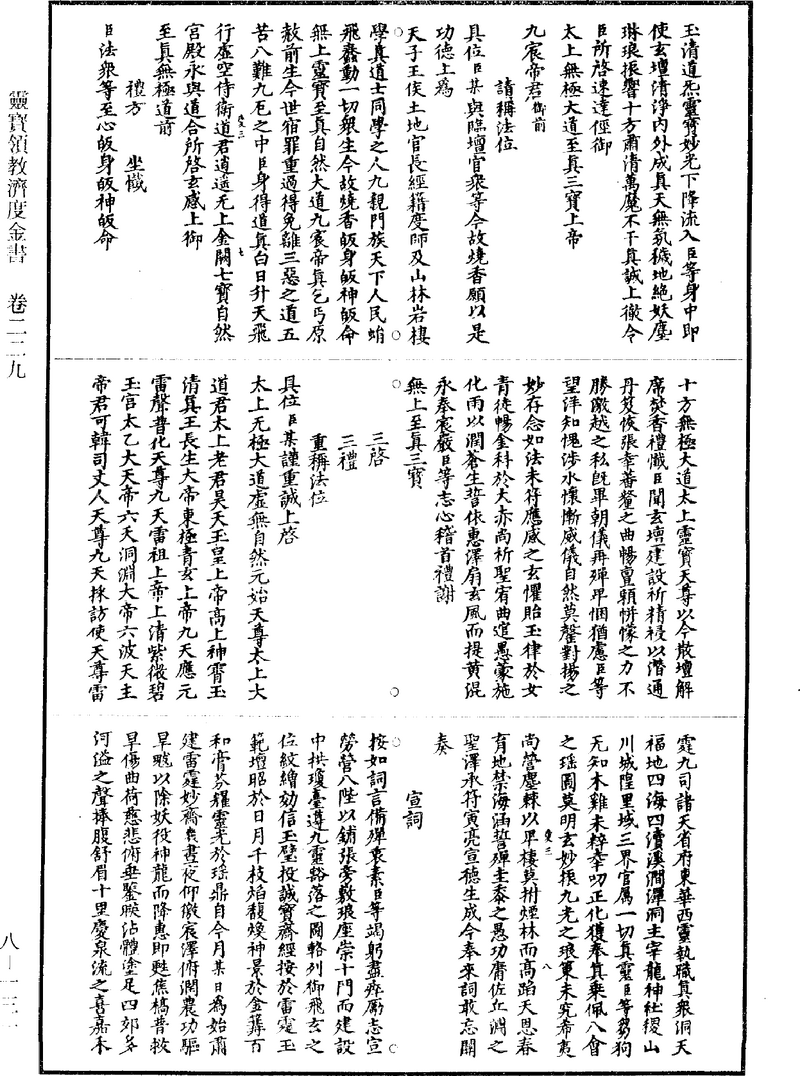 玉清道炁靈寶妙光下降流入臣等身中即
使玄壇清淨內外成真天無氛穢地絕妖塵
琳琅振響十方肅清萬魔不干真誠上徹令
臣所啓速達徑御
太上無極大道至真三寶上帝
九宸帝君御前
請稱法位
具位臣某與臨壇官衆等今故燒香願以是
功德上為
天子王侯土地官長經籍度師及山林岩棲
學真道士同學之人九親門族天下人民蛸
飛蠢動一切衆生今故燒香皈身皈神皈命
無上靈寶至真自然大道九宸帝真乞丐原
赦前生今世宿罪重過得免離三惡之道五
苦八難九厄之中臣身得道真白日升天飛
行虛空侍衛道君逍遥无上金闕七寶自然
宮殿永與道合所啓玄感上御
至真無極道前
禮方　坐懺
臣法衆等至心皈身皈神皈命
十方無極大道太上靈寶天尊以今散壇解
席焚香禮懺臣聞玄壇建設祈精祲以潛通
丹笈俟張幸菩釐之曲暢亶頼帡幪之力不
勝激越之私旣畢朝儀再殫卑悃猶慮臣等
望洋知愧涉水懷慚威儀自然莫罄對揚之
妙存念如法未符應感之玄懼貽玉律於女
青徒暢金科於大赤尚祈聖宥曲逭愚蒙施
化雨以潤蒼生誓依惠澤扇玄風而提黄混
永奉宸嚴臣等志心稽首禮謝
無上至真三寶
三啓
三禮
重稱法位
具位臣某謹重誠上啓
太上无極大道虛無自然元始天尊太上大
道君太上老君昊天玉皇上帝高上神霄玉
清真王長生大帝東極青玄上帝九天應元
雷聲普化天尊九天雷祖上帝上清紫微碧
玉宮太乙大天帝六天洞淵大帝六波天主
帝君可韓司丈人天尊九天採訪使天尊雷
霆九司諸天省府東華西靈執職真衆洞天
福地四海四瀆溪澗潭洞主宰龍神社稷山
川城隍里域三界官属一切真靈臣等芻狗
无知木雞未粹幸叨正化獲奉真乗佩八會
之瑶圖莫明玄妙振九光之琅篆未究希夷
尚營塵棘以卑棲莫拊煙林而高蹈天恩春
育地禁海涵誓殫圭黍之愚功膺佐丘淵之
聖澤承符寅亮宣德生成今奉來詞敢忘開
奏
宣詞
按如詞言備殫衷素臣等竭躬盡瘁厲志宣
勞營八陛以鋪張旁敷琅座崇十門而建設
中拱瓊臺遵九靈谿落之圖輅列御飛玄之
位紋繒効信玉璧投誠寶齋經按於雷霆玉
範壇昭於日月千枝焰馥煥神景於金蕣百
和膏芬耀靈光於瑶鼎自今月某日為始肅
建雷霆妙齋幾晝夜仰徼宸澤俯潤農功驅
旱魃以除妖役神龍而降惠即甦焦槁普救
旱傷曲荷慈悲俯垂鑒映沾體塗足四郊多
河溢之聲捧腹舒眉十里慶泉流之喜嘉禾
靈寶領教濟度金書　卷二二九
八—一二一